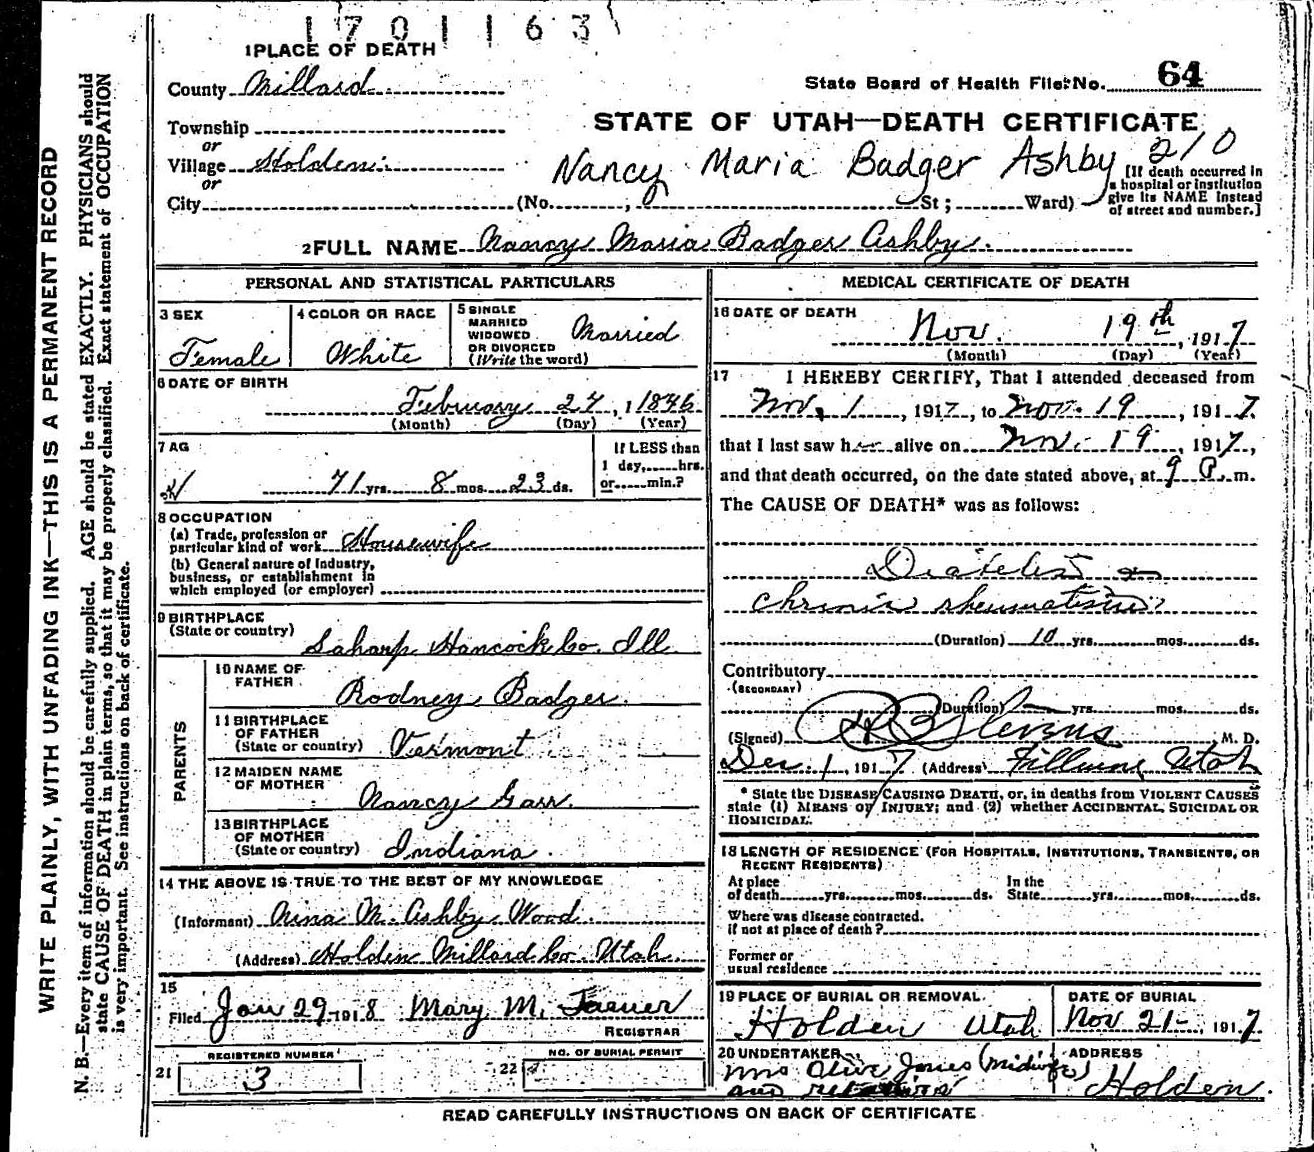 1701163
1 PLACE OF DEATH
County Millard
State Board of Health File No. 64
Township
or
Village Holden
or
City (No. , St ; Ward)
STATE OF UTAH—DEATH CERTIFICATE
210
Nancy Maria Badger Ashby
[If death occurred in
a hospital or institution
give its NAME instead
of street and number.]
2 FULL NAME Nancy Maria Badger Ashby.
PERSONAL AND STATISTICAL PARTICULARS
3 SEX
Female
4 COLOR OR RACE
White
5 SINGLE
MARRIED
WIDOWED
OR DIVORCED
(Write the word)
Married
6 DATE OF BIRTH
February 27, 1 1846
(Month) (Day) (Year)
7 AG
71 yrs. 8 mos. 23 ds.
If LESS than
1 day,......hrs.
or......min.?
8 OCCUPATION
(a) Trade, profession or
particular kind of work Housewife
(b) General nature of Industry,
business, or establishment in
which employed (or employer)
9 BIRTHPLACE
(State or country)
Laharp Hancock Co. Ill.
PARENTS
10 NAME OF
FATHER
Rodney Badger.
11 BIRTHPLACE
OF FATHER
(State or country) Vermont
12 MAIDEN NAME
OF MOTHER
Nancy Garr.
13 BIRTHPLACE
OF MOTHER
(State or country) Indiana.
14 THE ABOVE IS TRUE TO THE BEST OF MY KNOWLEDGE
(Informant) M. Ashby Wood.
(Address) Holden Millard Co. Utah.
15
Filed Jan 29 1918 Mary M.
REGISTRAR
REGISTERED NUMBER
21 3
NO. OF BURIAL PERMIT
22
MEDICAL CERTIFICATE OF DEATH
16 DATE OF DEATH
Nov. 19th, 1917
(Month) (Day) (Year)
17 I HEREBY CERTIFY, That I attended deceased from
Nov. 1, 1917, to Nov. 19, 1917.
that I last saw her alive on Nov. 19, 1917,
and that death occurred, on the date stated above, at 9 P.m.
The CAUSE OF DEATH* was as follows:
Diabetes
Chronic rheumatism
(Duration) 10 yrs. mos. ds.
Contributory
(SECONDARY)
(Duration) yrs. mos. ds.
(Signed) Stevens M. D.
Dec. 1, 1917 (Address) Fillmore Utah
* State the DISEASE CAUSING DEATH, or, in deaths from VIOLENT CAUSES
state (1) MEANS OF INJURY; and (2) whether ACCIDENTAL, SUICIDAL OR
HOMICIDAL.
18 LENGTH OF RESIDENCE (FOR HOSPITALS, INSTITUTIONS, TRANSIENTS, OR
RECENT RESIDENTS)
At place In the
of death......yrs.......mos.......ds. State......yrs.......mos.......ds.
Where was disease contracted.
if not at place of death?
Former or
usual residence
19 PLACE OF BURIAL OR REMOVAL.
Holden Utah
DATE OF BURIAL
Nov 21-, 1917
20 UNDERTAKER
Mrs Olive Jones (Midwife)
and relatives
ADDRESS
Holden.
READ CAREFULLY INSTRUCTIONS ON BACK OF CERTIFICATE
WRITE PLAINLY, WITH UNFADING INK—THIS IS A PERMANENT RECORD
N. B.—Every item of information should be carefully supplied. AGE should be stated EXACTLY. PHYSICIANS should
state CAUSE OF DEATH in plain terms, so that it may be properly classified. Exact statement of OCCUPATION
is very important. See instructions on back of certificate.